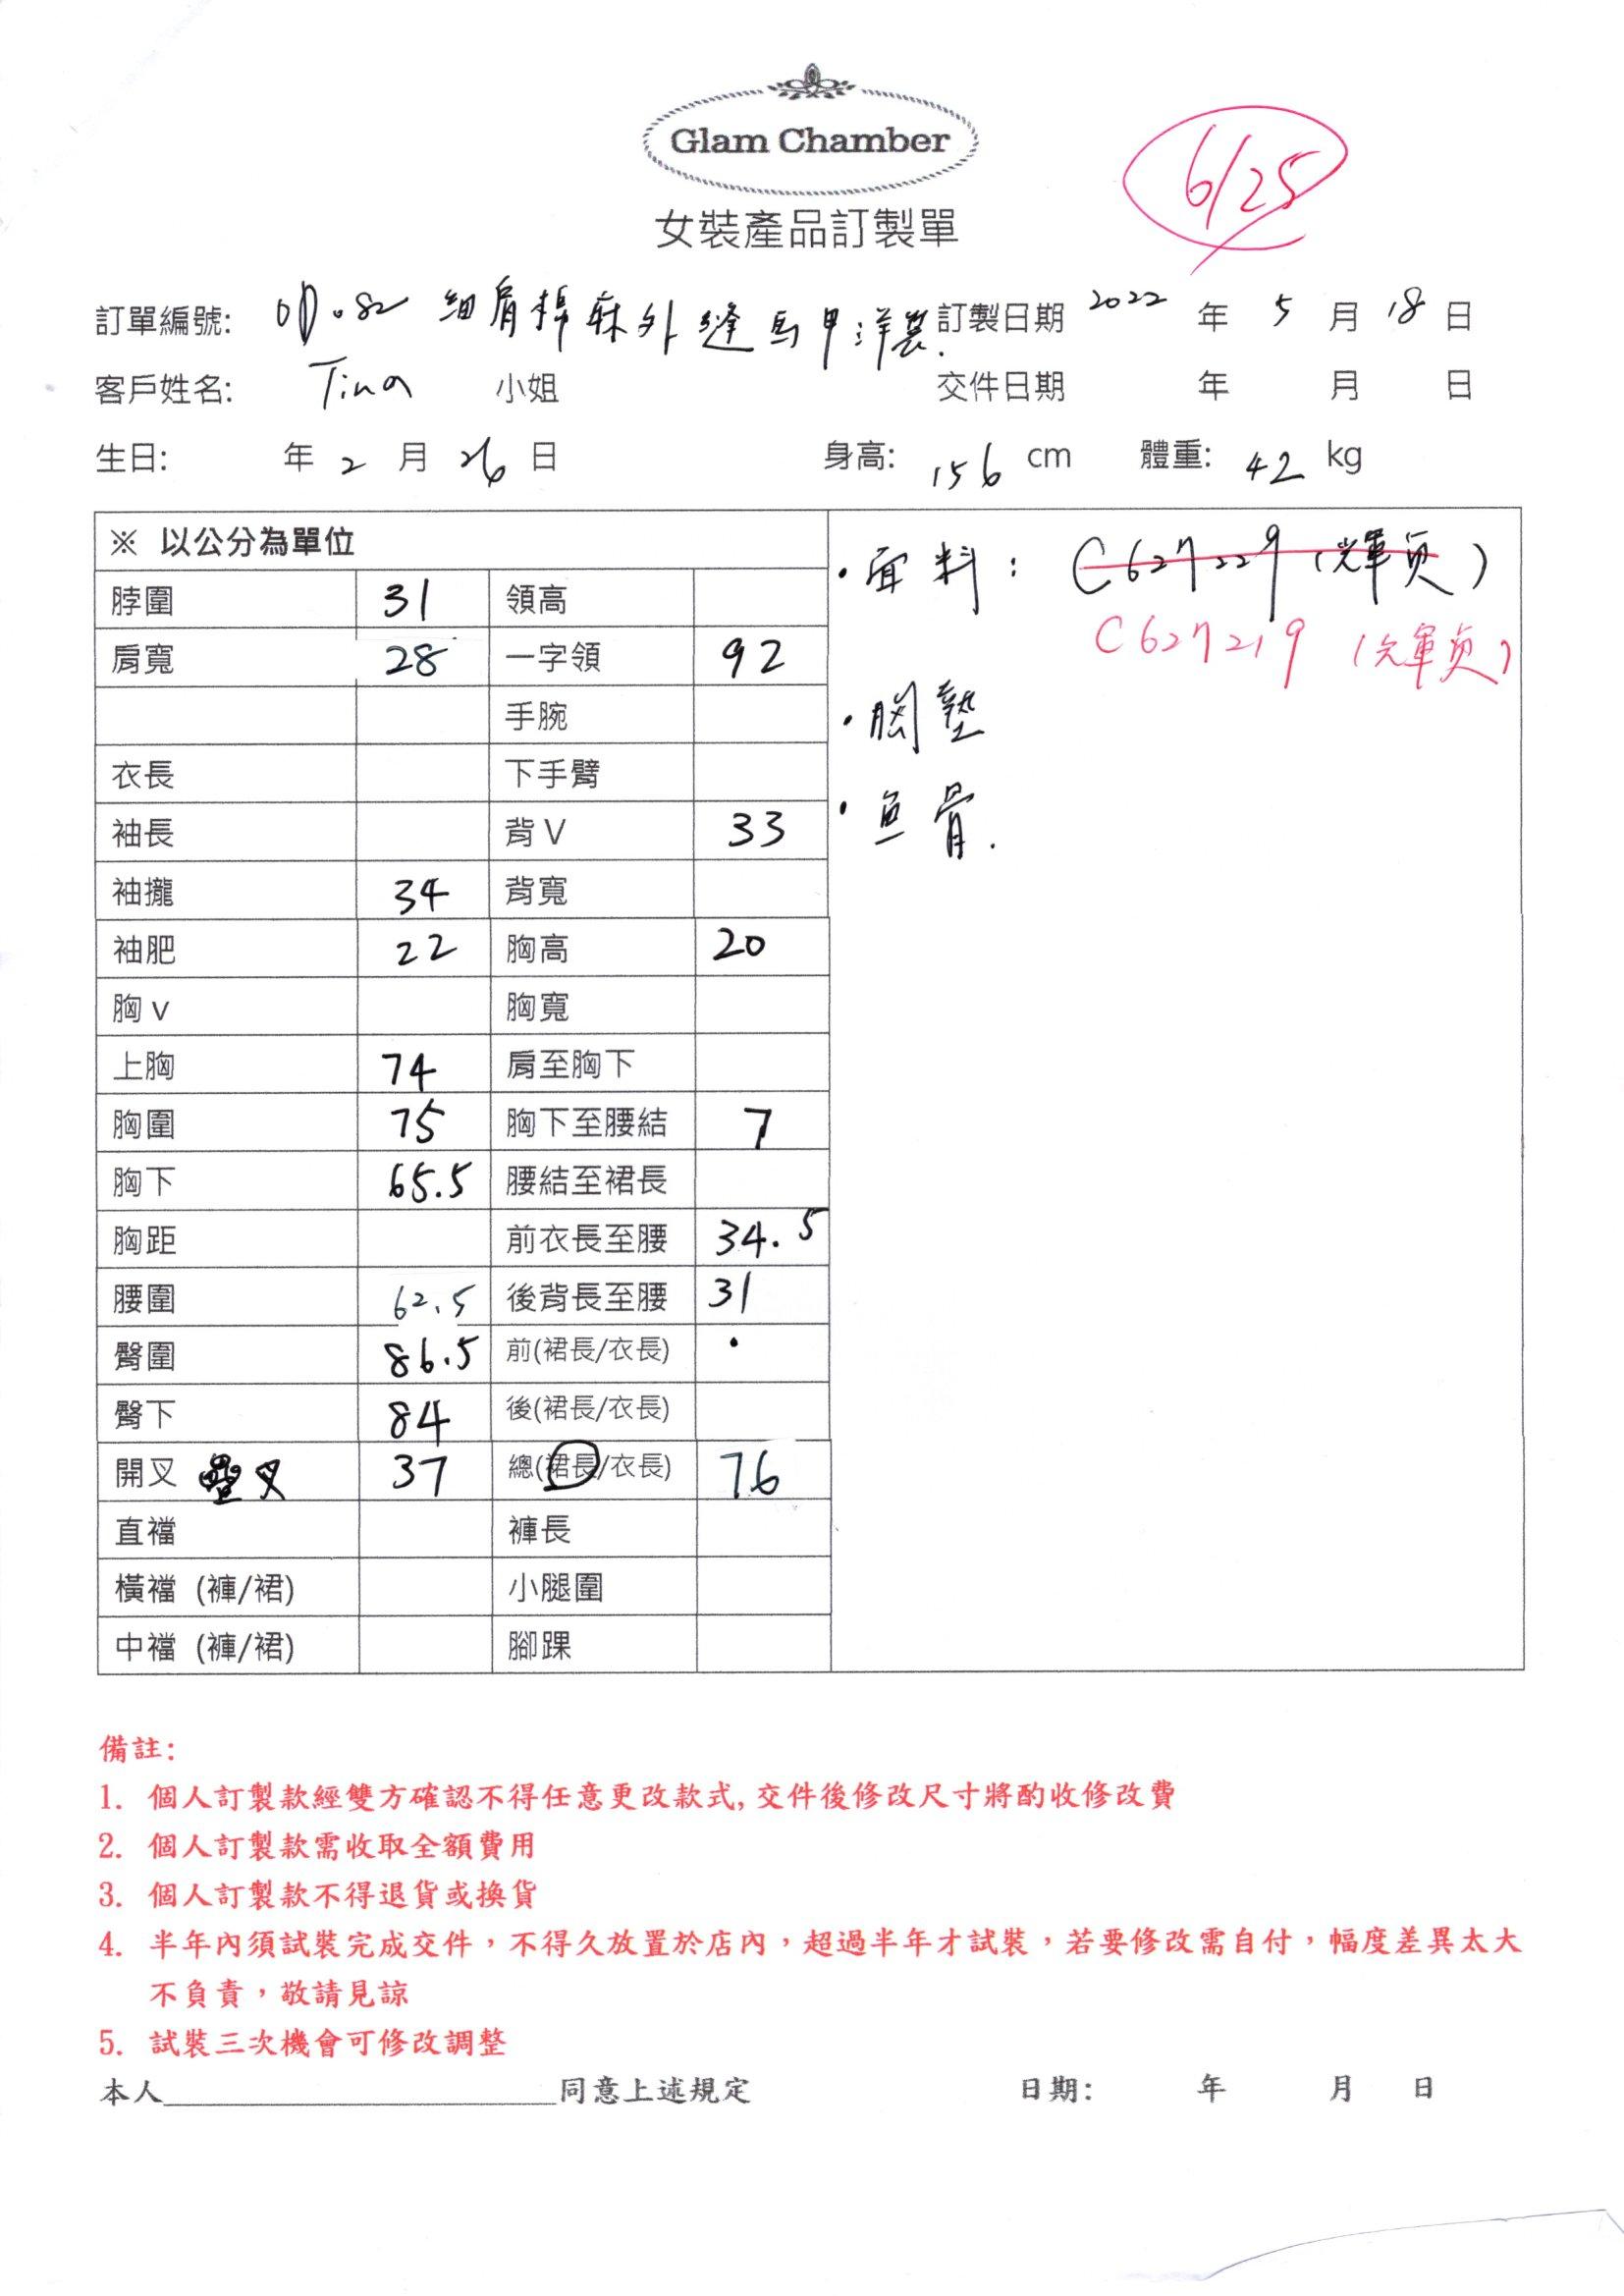 Glam Chamber
6/25
女裝產品訂製單
訂單編號: 細肩棉麻外縫馬甲洋裝. 訂製日期 2022 年 5 月 18 日
客戶姓名: Tina 小姐 交件日期 年 月 日
生日: 年 2 月 26 日 身高: 156 cm 體重: 42 kg
※ 以公分為單位
脖圍 31 領高
肩寬 28 一字領 92
手腕
衣長 下手臂
袖長 背 V 33
袖攏 34 背寬
袖肥 22 胸高 20
胸 v 胸寬
上胸 74 肩至胸下
胸圍 75 胸下至腰結 7
胸下 65.5 腰結至裙長
胸距 前衣長至腰 34.5
腰圍 62.5 後背長至腰 31
臀圍 86.5 前(裙長/衣長)
臀下 84 後(裙長/衣長)
開叉 疊叉 37 總(裙長/衣長) 76
直襠 褲長
橫襠 (褲/裙) 小腿圍
中襠 (褲/裙) 腳踝
·面料: C627229 (光軍頁)
C627219 (光軍頁)
·胸墊
·魚骨.
備註:
1. 個人訂製款經雙方確認不得任意更改款式, 交件後修改尺寸將酌收修改費
2. 個人訂製款需收取全額費用
3. 個人訂製款不得退貨或換貨
4. 半年內須試裝完成交件，不得久放置於店內，超過半年才試裝，若要修改需自付，幅度差異太大
不負責，敬請見諒
5. 試裝三次機會可修改調整
本人______________________同意上述規定 日期: 年 月 日